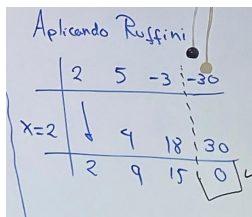 Aplicando Ruffini
2 5 -3 -30
x=2 4 18 30
2 9 15 0